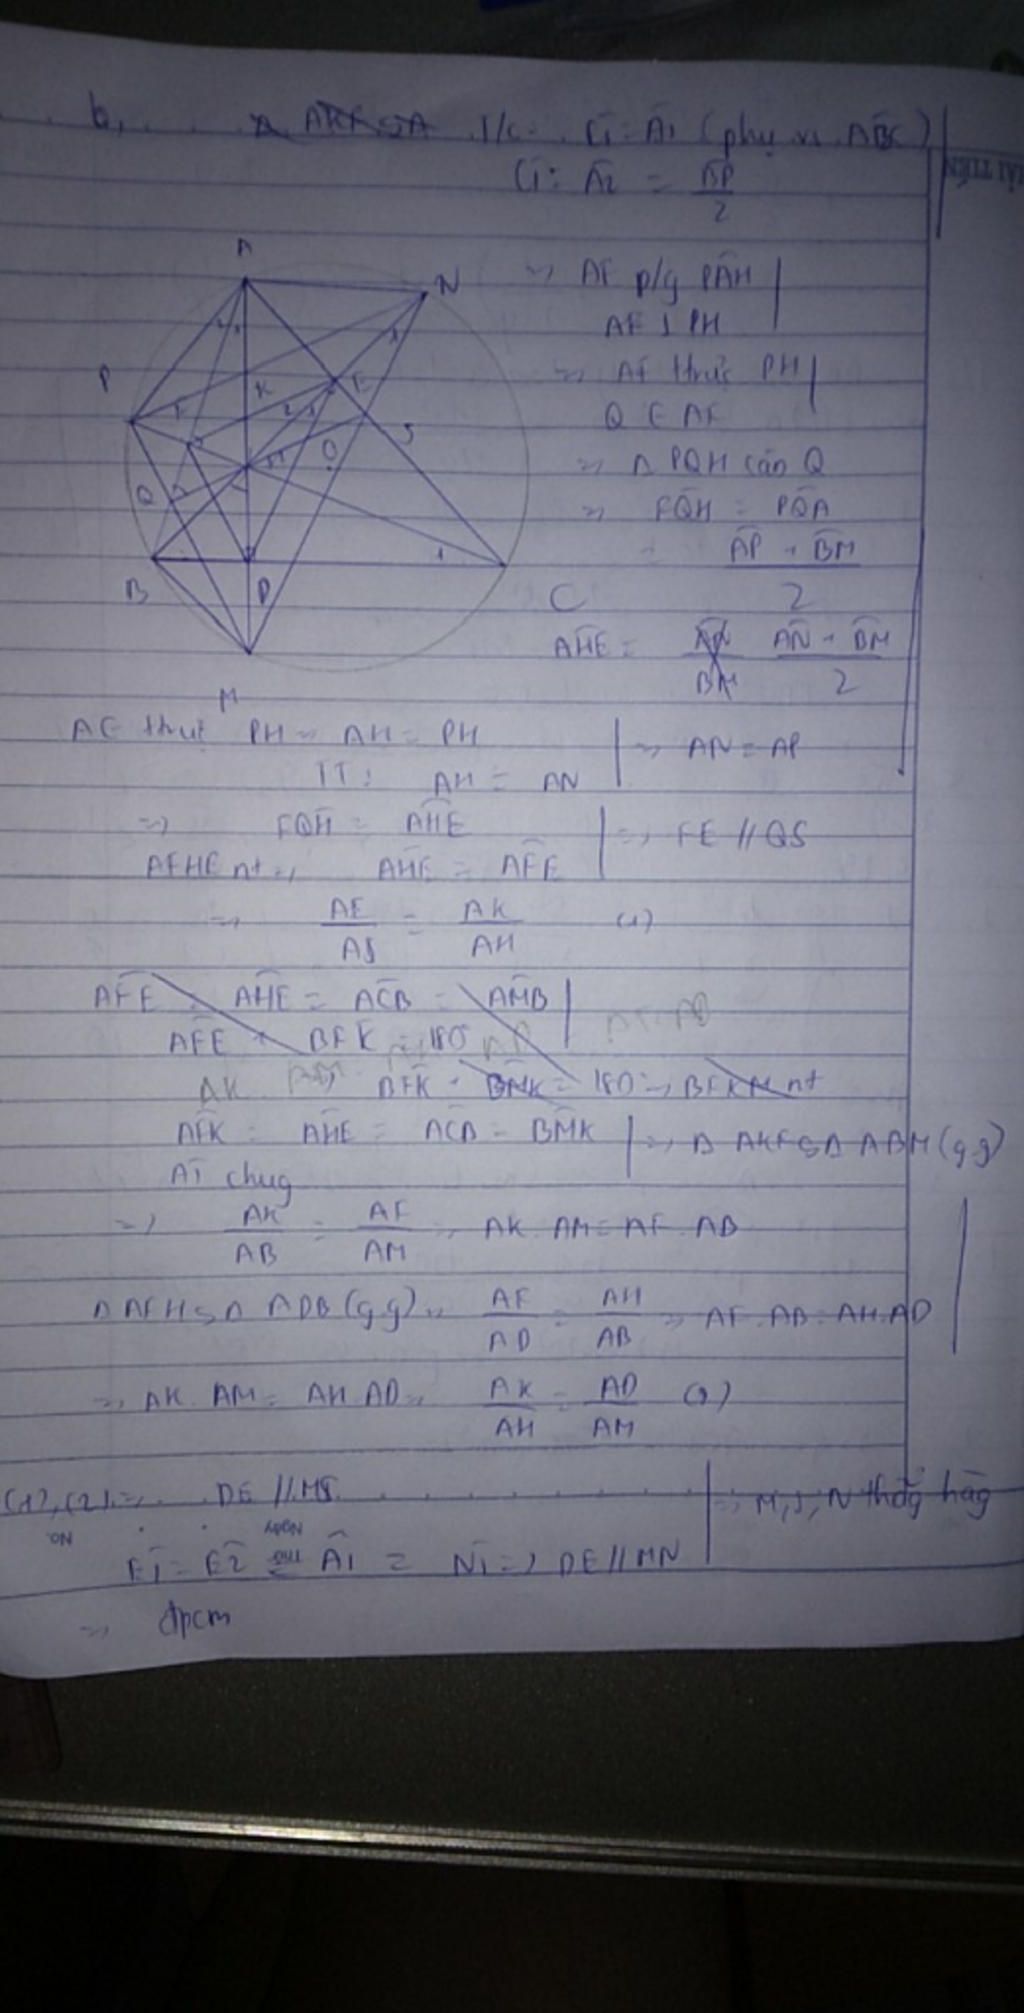 b,
T/c: Ĉ1 = Â1 (phụ vs ABC)
Ĉ1 = Â2 = BP/2
A
N
P
K
E
F
S
Q
O
B
D
C
M
=> AF p/g PAH
AF ⊥ PH
=> AF trực PH
Q ∈ AF
=> Δ PQH cân Q
=> FQH = PQA
= AP + BM / 2
AHE = AN + BM / 2
AF trực PH => AH = PH
TT: AH = AN
=> AN = AP
=> FQH = AHE
AFHE nt => AHE = AFE
=> FE // QS
=> AE/AS = AK/AH (1)
AFE = AHE = ACB = AMB
AFE + BFK = 180
BFK + BMK = 180 => BFKM nt
AFK = AHE = ACB = BMK
Â1 chug
=> Δ AKF ∽ Δ ABM (g.g)
=> AK/AB = AF/AM => AK . AM = AF . AB
Δ AFH ∽ Δ ADB (g.g) => AF/AD = AH/AB => AF . AB = AH . AD
=> AK . AM = AH . AD => AK/AH = AD/AM (2)
(1), (2) => DE // MS
No.
Ngày
Ê1 = Ê2 = Â1 = N̂1 => DE // MN
=> M, S, N thẳg hàg
=> đpcm